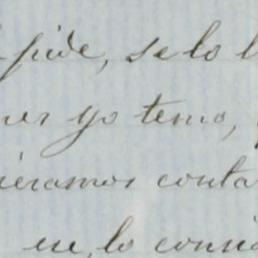 pide, se lo
yo temo,
eramos conta
en, lo consi